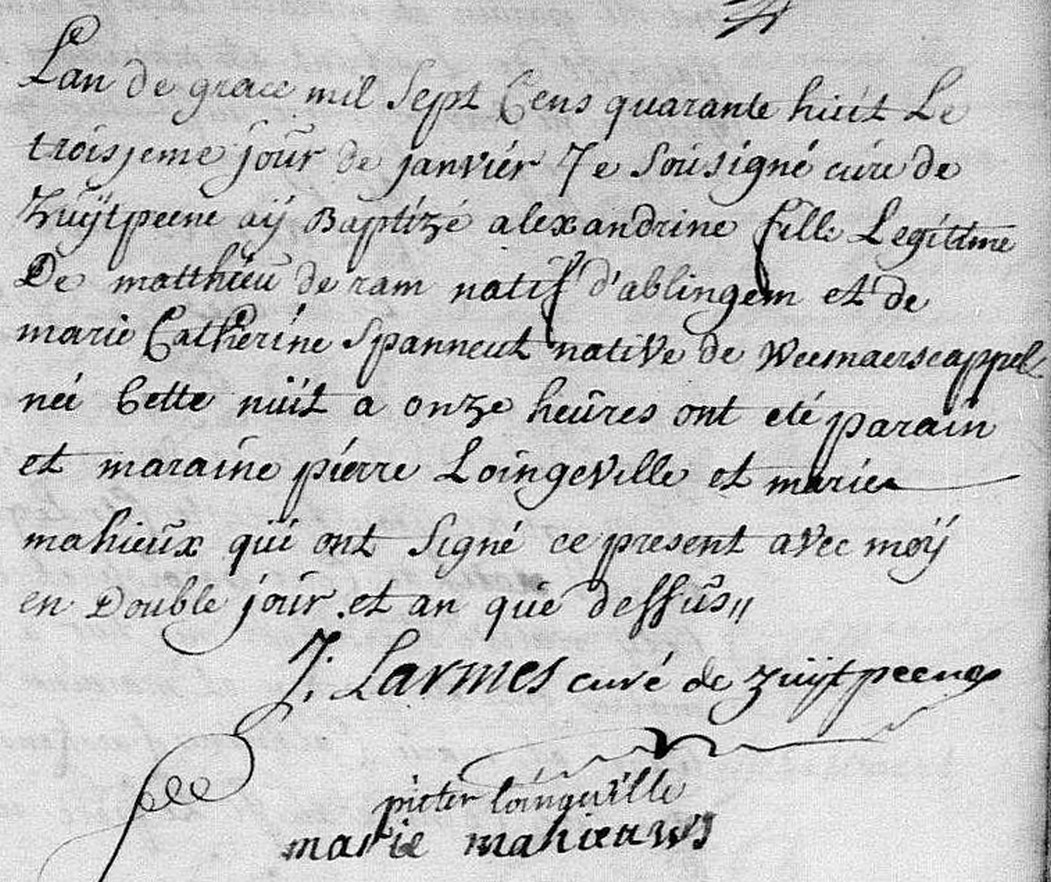 Lan de grace mil Sept Cens quarante huit Le
troisjeme jour de janvier Je Sousigné curé de
Zuÿtpeene aÿ Baptizé alexandrine fille Legitime
De matthieu de ram natif d'ablingem et de
marie Catherine Spanneut native de Weemaerscappel
née Cette nuit a onze heures ont eté parain
et maraine pierre Loingeville et marie
mahieux qui ont Signé ce present avec moÿ
en Double jour et an que dessus
J. Larmes curé de Zuijtpeene
pieter loingeville
marie mahieuws